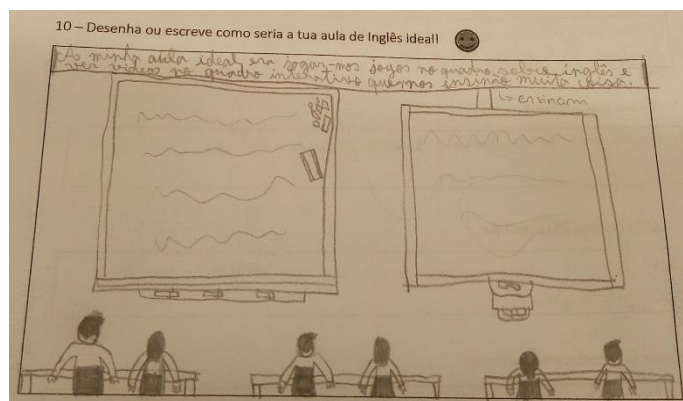 10 – Desenha ou escreve como seria a tua aula de Inglês ideal!
A minha aula ideal era jogar-mos jogos no quadro sobre inglês e
ver videos no quadro interativo que nos insinão muita coisa.
↳ ensinam